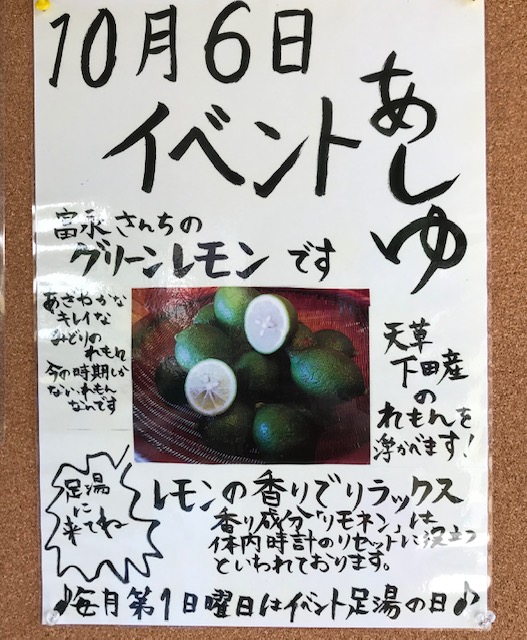 10月6日
イベント
あしゆ
富永さんちの
グリーンレモンです
あざやかな
キレイな
みどりの
れもん
今の時期しか
ないれもん
なんです
天草
下田産
の
れもんを
浮かべます!
足湯
に
来てね
レモンの香りでリラックス
香り成分「リモネン」は
体内時計のリセットに役立つ
といわれております。
♪毎月第1日曜日はイベント足湯の日♪